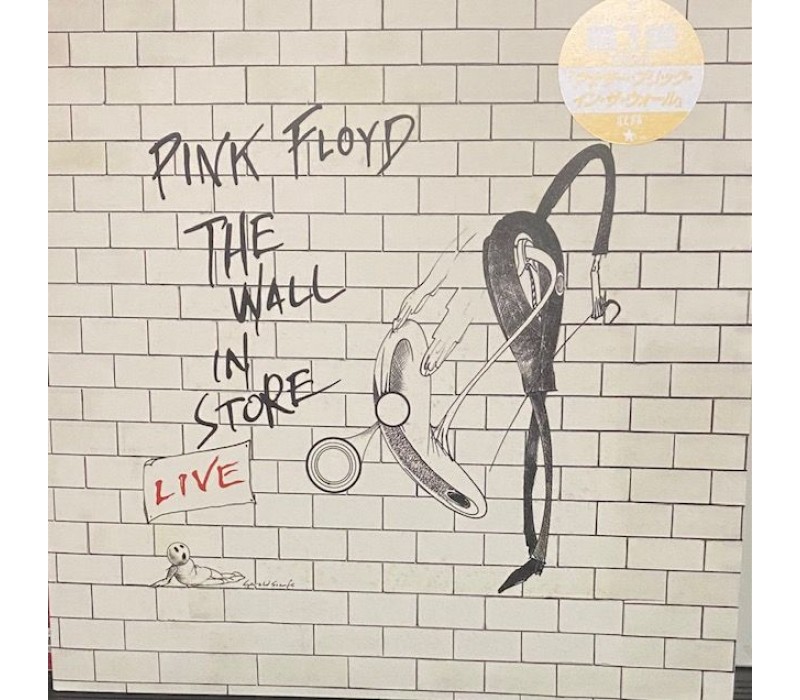 アナザー・ブリック・
イン・ザ・ウォール」
PINK FLOYD
THE
WALL
IN
STORE
LIVE
Gerald Scarfe